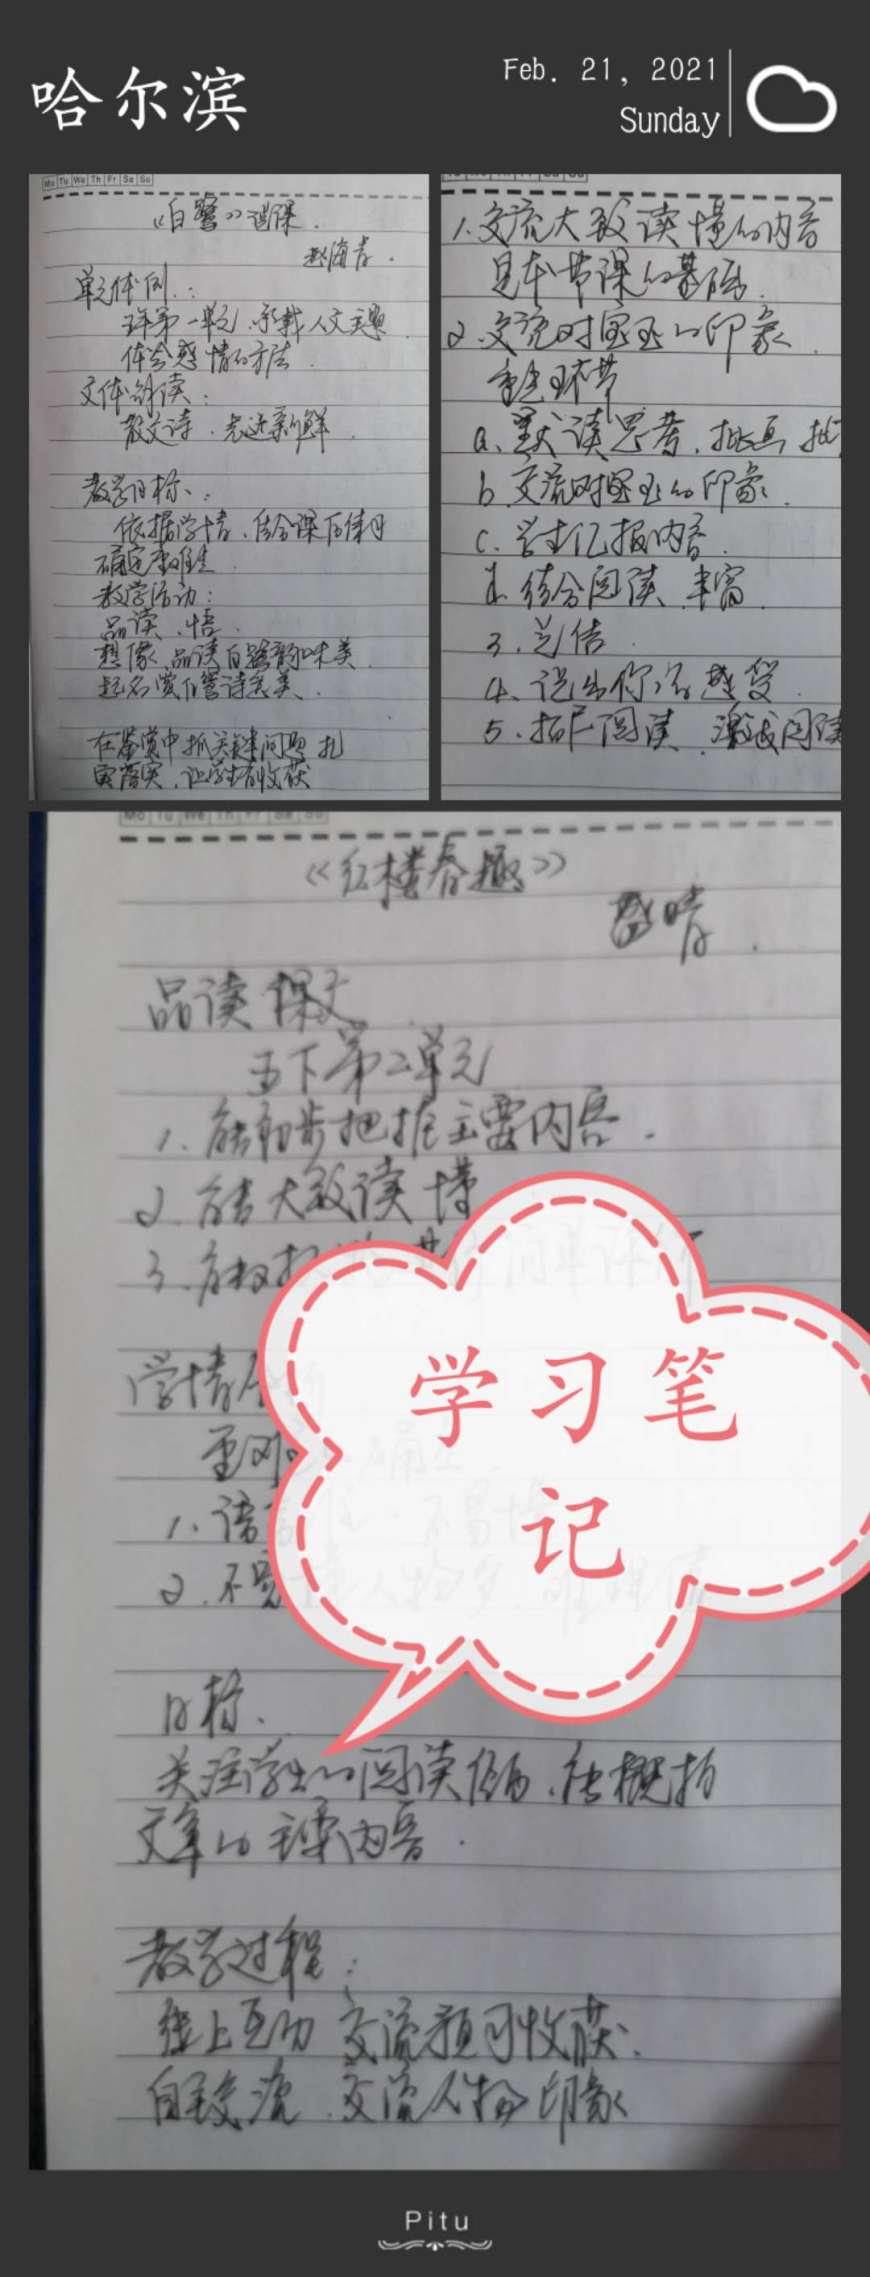 哈尔滨
Feb. 21, 2021
Sunday
《白鹭》说课.
赵海青.
单元体例：
五年第一单元、承载人文主题
体会感情的方法.
文体解读：
散文诗.
教学目标：
依据学情、结合课后练习
确定重难点
教学活动：
品读、悟.
想像、品读白鹭韵味美.
起名赏白鹭诗意美.
在鉴赏中抓关键问题扎
实落实、让学生有收获
1.交流大致读懂的内容
是本节课的基础.
2.交流对宝玉的印象.
重点环节
a.默读思考.批画
b.交流对宝玉的印象.
c.学生汇报内容.
d.结合阅读.丰富.
3.总结.
4.说出你的感受.
5.拓展阅读.激发阅读
《红楼春趣》
盛晴.
品读课文
五下第二单元
1.能初步把握主要内容.
2.能大致读懂
学情分析
1.语言 不易懂
目标.
关注学生的阅读体验.能概括
文章的主要内容.
教学过程：
线上互动 交流预习收获.
自主交流.交流人物印象
学习笔
记
Pitu